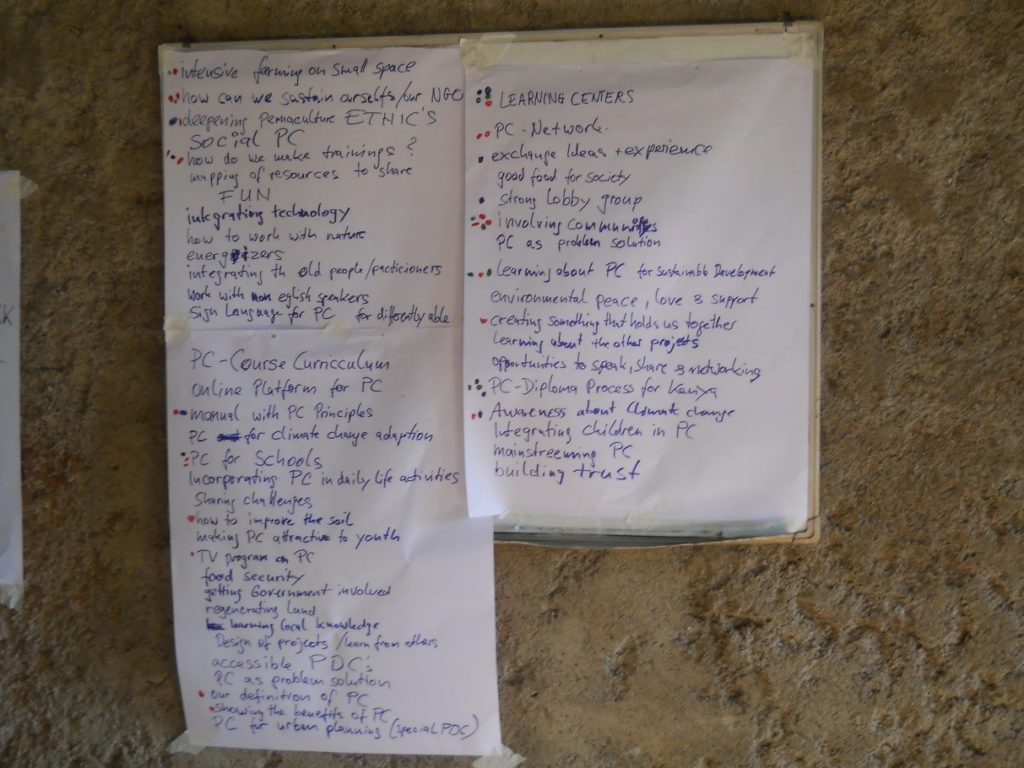 intensive farming on small space
how can we sustain ourselfs/our NGO
deepening Permaculture ETHIC'S
SOCIAL PC
how do we make trainings?
mapping of resources to share
FUN
integrating technology
how to work with nature
energizers
integrating th old people/practicioners
Work with non eglish speakers
Sign Language for PC for differently able
PC-Course Curricculum
Online Platform for PC
manual with PC Principles
PC for climate change adaption
PC for Schools
Incorporating PC in daily life activities
Sharing challenges
how to improve the soil
making PC attractive to youth
TV program on PC
food security
getting Government involved
regenerating Land
learning local knowledge
Design of projects / learn from others
accessible PDC's
PC as problem solution
our definition of PC
showing the benefits of PC
PC for urban planning (special PDC)
LEARNING CENTERS
PC-Network
exchange Ideas + experience
good food for society
strong Lobby group
involving Communities
PC as problem solution
Learning about PC for Sustainable Development
environmental peace, love & support
creating something that holds us together
Learning about the other projects
opportunities to speak, share & networking
PC-Diploma Process for Kenya
Awareness about Climate change
Integrating children in PC
mainstreeming PC
building trust
K